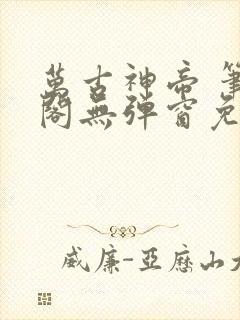 萬古神帝 筆
閣無彈窗免
威廉-亞歷山大